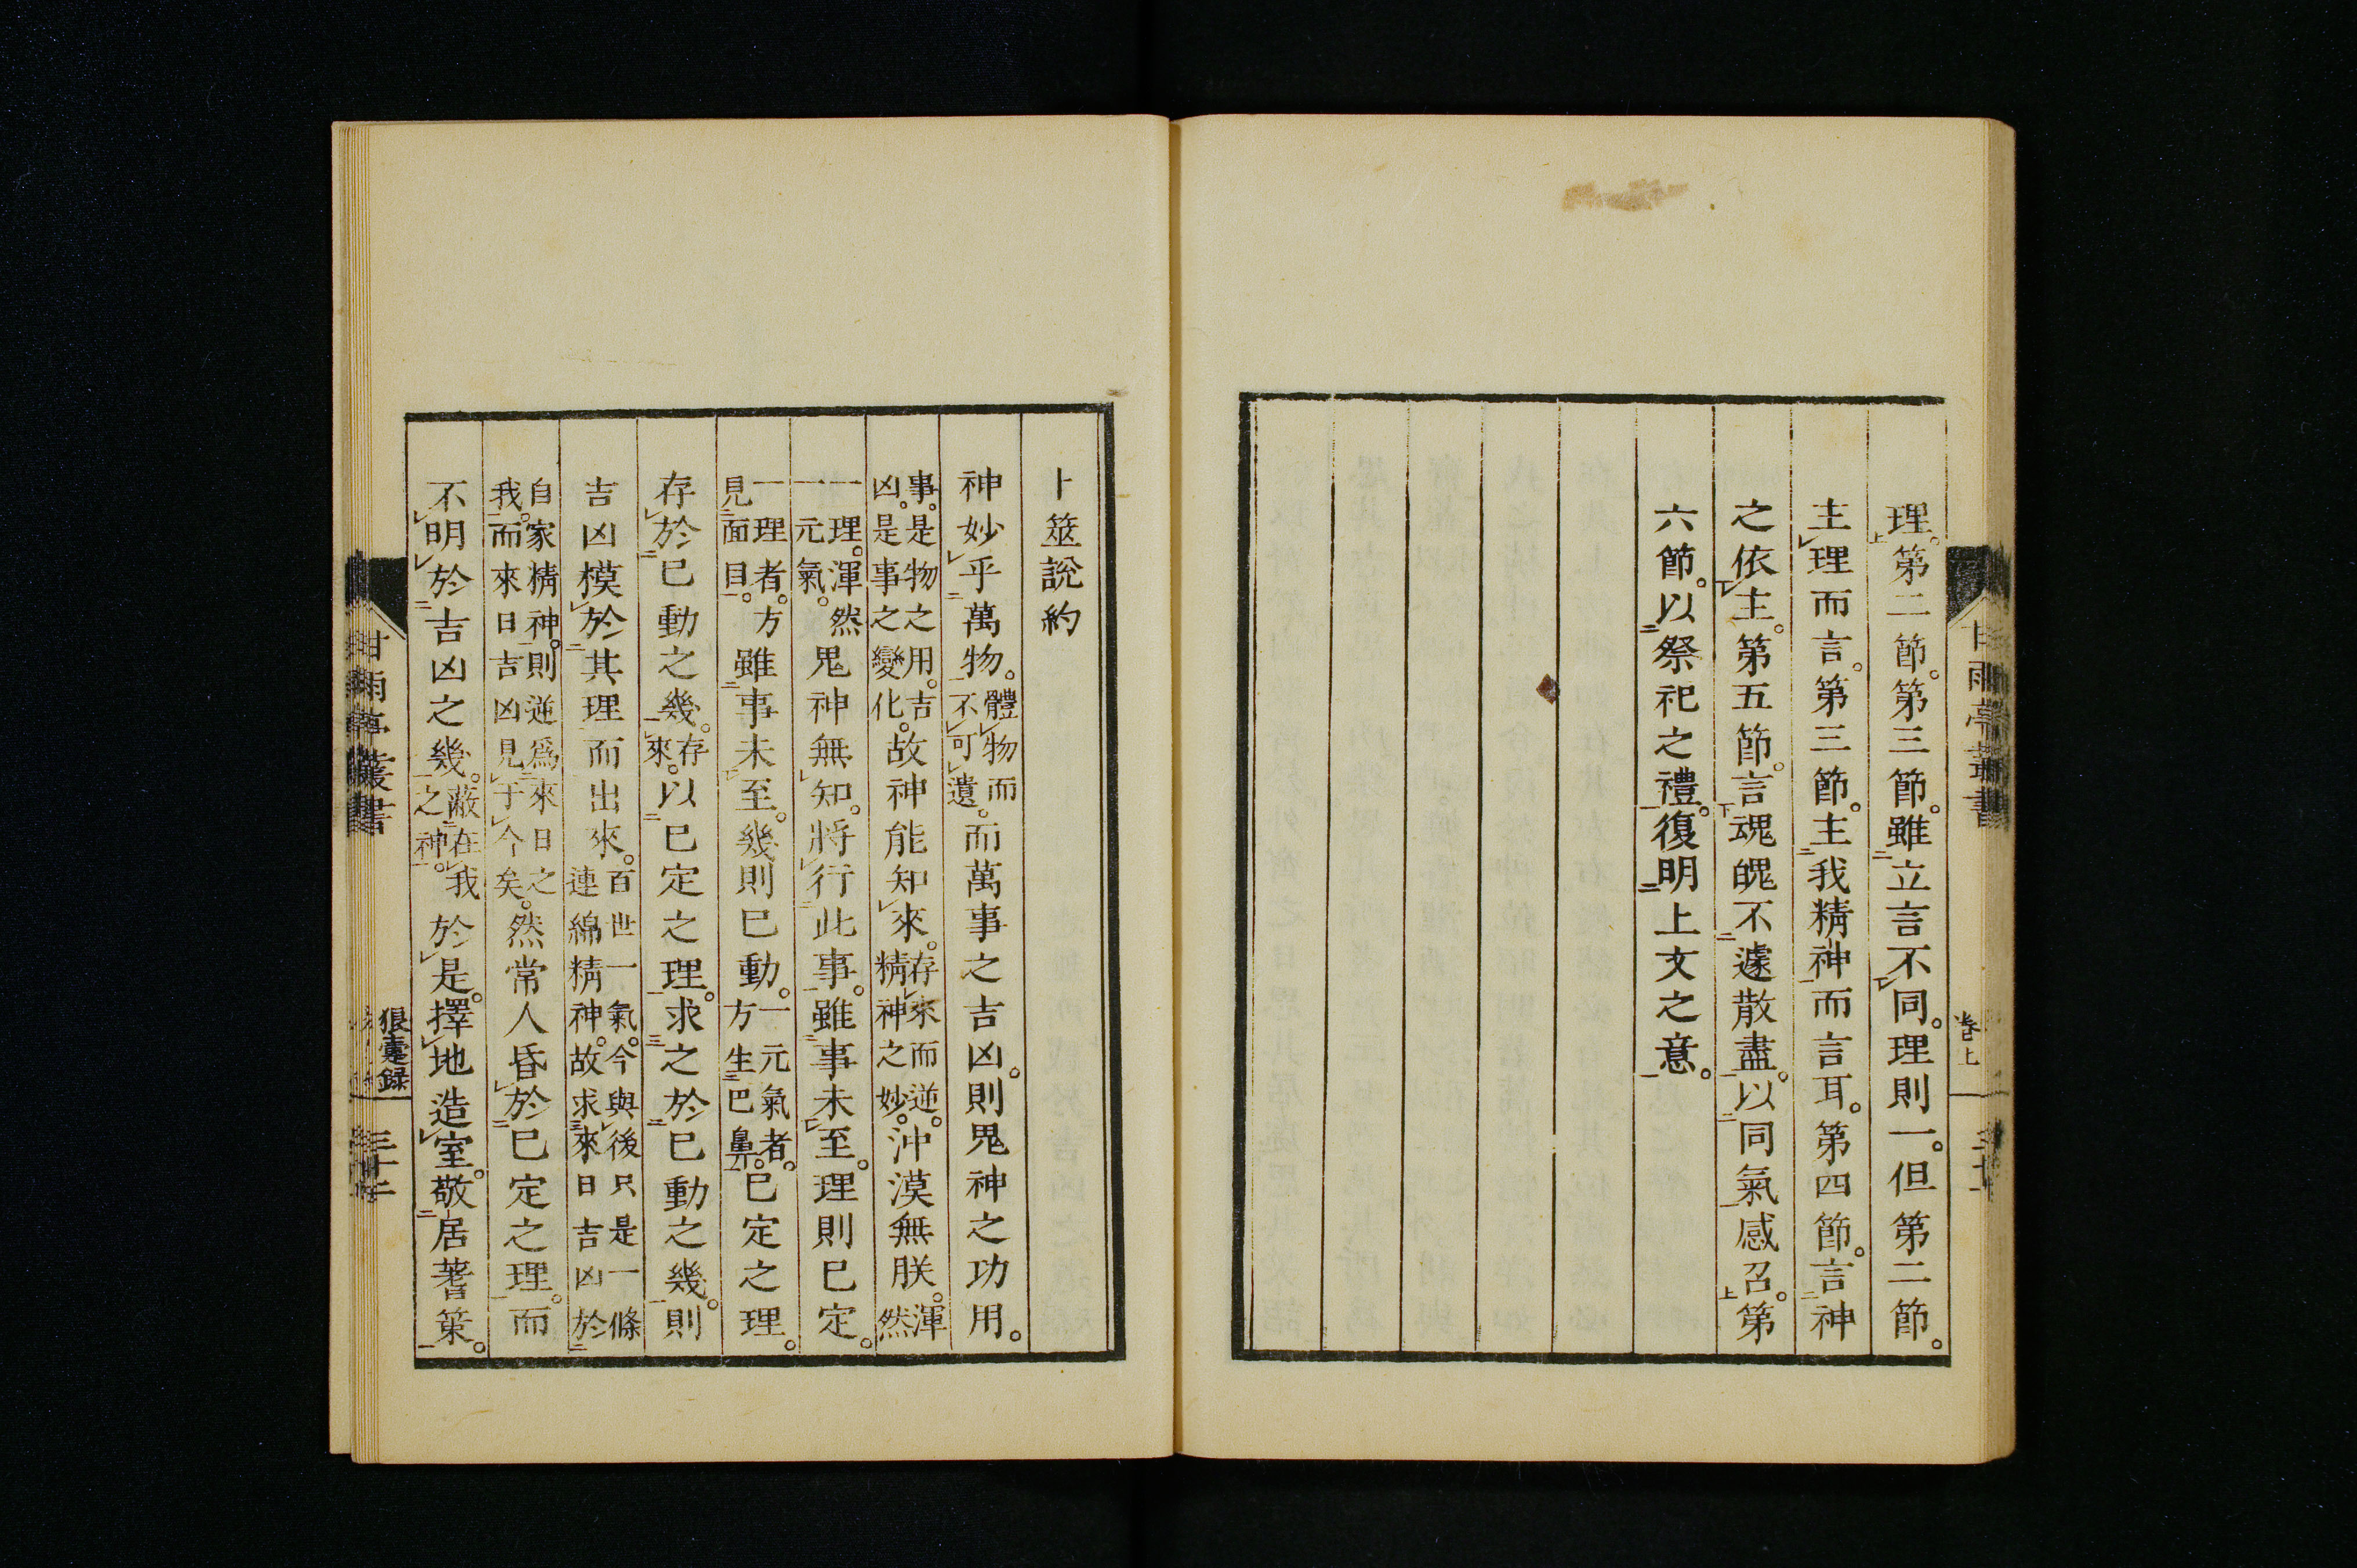 理。第二節。第三節。雖立言不同。理則一。但第二節。
主理而言。第三節。主我精神而言耳。第四節。言神
之依主。第五節。言魂魄不遽散盡。以同氣感召。第
六節。以祭祀之禮。復明上文之意。
甘雨亭叢書
卷上
卜筮說約
神妙乎萬物。體物而不可遺。而萬事之吉凶。則鬼神之功用。
事。是物之用。吉凶。是事之變化。故神能知來。存來而逆。精神之妙。沖漠無朕。渾然
一理。渾然一元氣。鬼神無知。將行此事。雖事未至。理則已定。
一理者。方見面目。雖事未至。幾則已動。一元氣者。方生巴鼻。已定之理。
存於已動之幾。存來。以已定之理。求之於已動之幾。則
吉凶模於其理而出來。百世一氣。今與後只是一條連綿精神。故求來日吉凶於
自家精神。則逆為來日之我。而來日吉凶見于今矣。然常人昏於已定之理。而
不明於吉凶之幾。蔽在我之神。於是。擇地造室。敬居蓍筞。
甘雨亭叢書
狼疐録